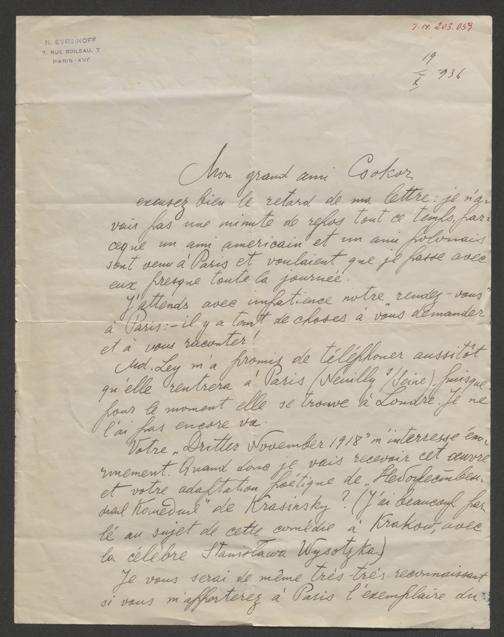 N. EVREINOFF
7, RUE BOILEAU, 7
PARIS-XVIe
I.N. 203.059
19
X 936
Mon grand ami Csokor,
excusez bien le retard de ma lettre: je n'a-
vais pas une minute de repos tout ce temps, par-
ceque un ami americain et un ami polonais
sont venu à Paris et voulaient que je passe avec
eux presque toute la journée.
J'attends avec impatience notre „rendez-vous"
à Paris: – il y a tant de choses à vous demander
et à vous raconter!
Md. Ley m'a promis de téléphoner aussitôt
qu'elle rentrera à Paris (Neuilly s/Seine), puisque
pour le moment elle se trouve à Londre. Je ne
l'ai pas encore vu.
Votre „Dritter November 1918" m'interesse énor-
mement. Quand donc je vais recevoir cet œuvre
et votre adaptation poëtique de
de Krasinsky? (J'ai beaucoup par-
lé au sujet de cette comédie à Krakow, avec
la célèbre Stanisława Wysotzka)
Je vous serai de même très-très reconnaissant
si vous m'apporterez à Paris l'exemplaire du